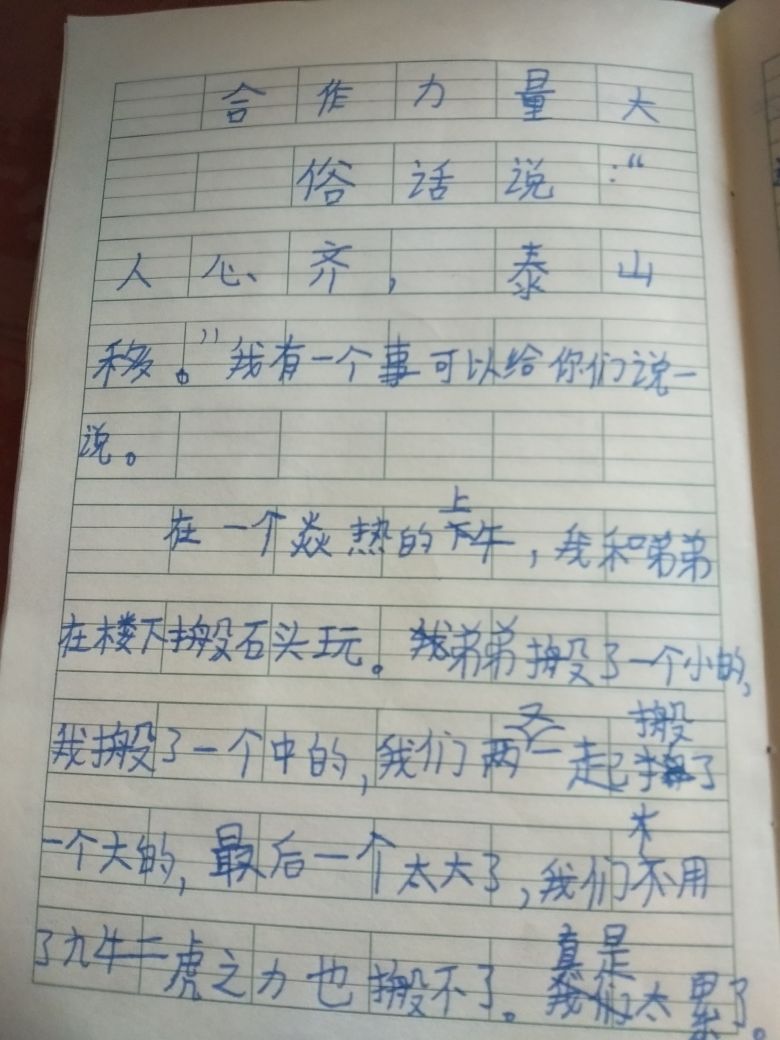 合作力量大
俗话说:“
人心齐,泰山
移。”我有一个事可以给你们说一
说。
在一个焱热的上午,我和弟弟
在楼下搬石头玩。我弟弟搬了一个小的,
我搬了一个中的,我们两又一起搬了
一个大的,最后一个太大了,我们用
了九牛二虎之力也搬不了。真是太累了。